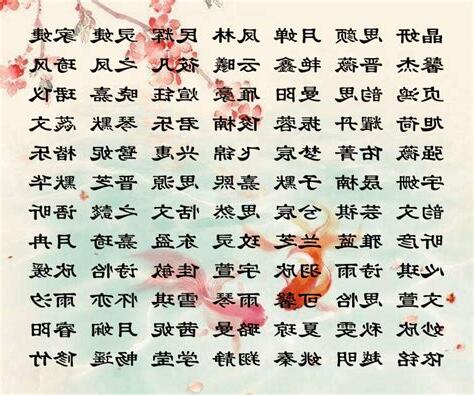 晶妍 思颜 月婵 凤林 民辉 灵婕 家婕
馨杰 晋薇 艳鑫 云曦 筱凡 之凤 琦风
贞鸿 思韵 曼阳 雁 煊钰 嘉晓 珺仪
旭荷 耀丹 振蓉 俊楠 君乐 琴默 蕊文
强薇 佑菁 梦宸 锦飞 兴惠 妮鹭 楷乐
宇姗 晟楠 子默 嘉熙 思源 晋芝 默华
韵文 芸祺 兮宸 思然 恬文 懿之 语昕
昕彦 雅蓝 兰芝 灵玟 东盈 嘉琦 月冉
心琪 诗雨 欣羽 萱宇 敏佳 诗怡 欣媛
文萱 思怡 可馨 雨琴 雪琪 怀亦 雨汐
妙欣 秋雯 夏琼 璐曼 茜妮 月娴 睿阳
依铭 越明 姚秦 翔静 学莹 畅遥 修竹